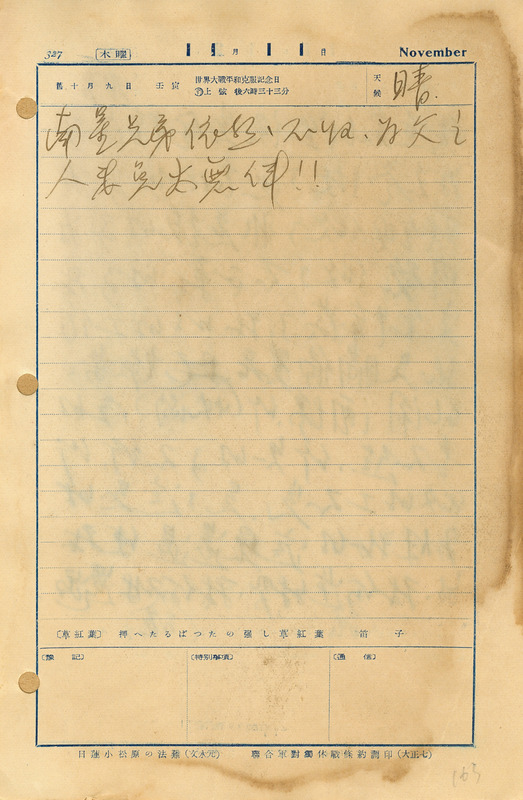 327 木曜 11月11日 November
舊十月九日 壬寅 世界大戰平和克服記念日 上弦 後六時三十三分 天候 晴
南星兄弟依然、不
人
〔草紅葉〕 押へたるばつたの强し草紅葉 笛子
〔豫記〕 〔特別事項〕 〔通信〕
日蓮小松原の法難(文永元) 聯合軍對獨休戰條約調印(大正七)
165